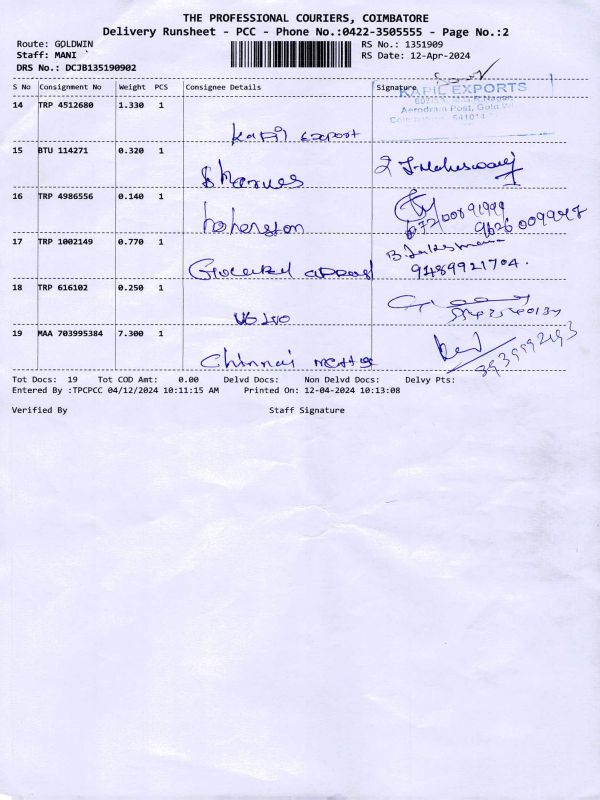 THE PROFESSIONAL COURIERS, COIMBATORE
Delivery Runsheet - PCC - Phone No.:0422-3505555 - Page No.:2
Route: GOLDWIN
RS No.: 1351909
Staff: MANI
RS Date: 12-Apr-2024
DRS No.: DCJB135190902
S No Consignment No Weight PCS Consignee Details Signature
KAPIL EXPORTS
Aerodram Post, Gold
14 TRP 4512680 1.330 1
Kapil Export
15 BTU 114271 0.320 1
16 TRP 4986556 0.140 1
17 TRP 1002149 0.770 1
9489921704.
18 TRP 616102 0.250 1
Volvo
19 MAA 703995384 7.300 1
Chinnai
Tot Docs: 19 Tot COD Amt: 0.00 Delvd Docs: Non Delvd Docs: Delvy Pts:
Entered By :TPCPCC 04/12/2024 10:11:15 AM Printed On: 12-04-2024 10:13:08
Verified By Staff Signature